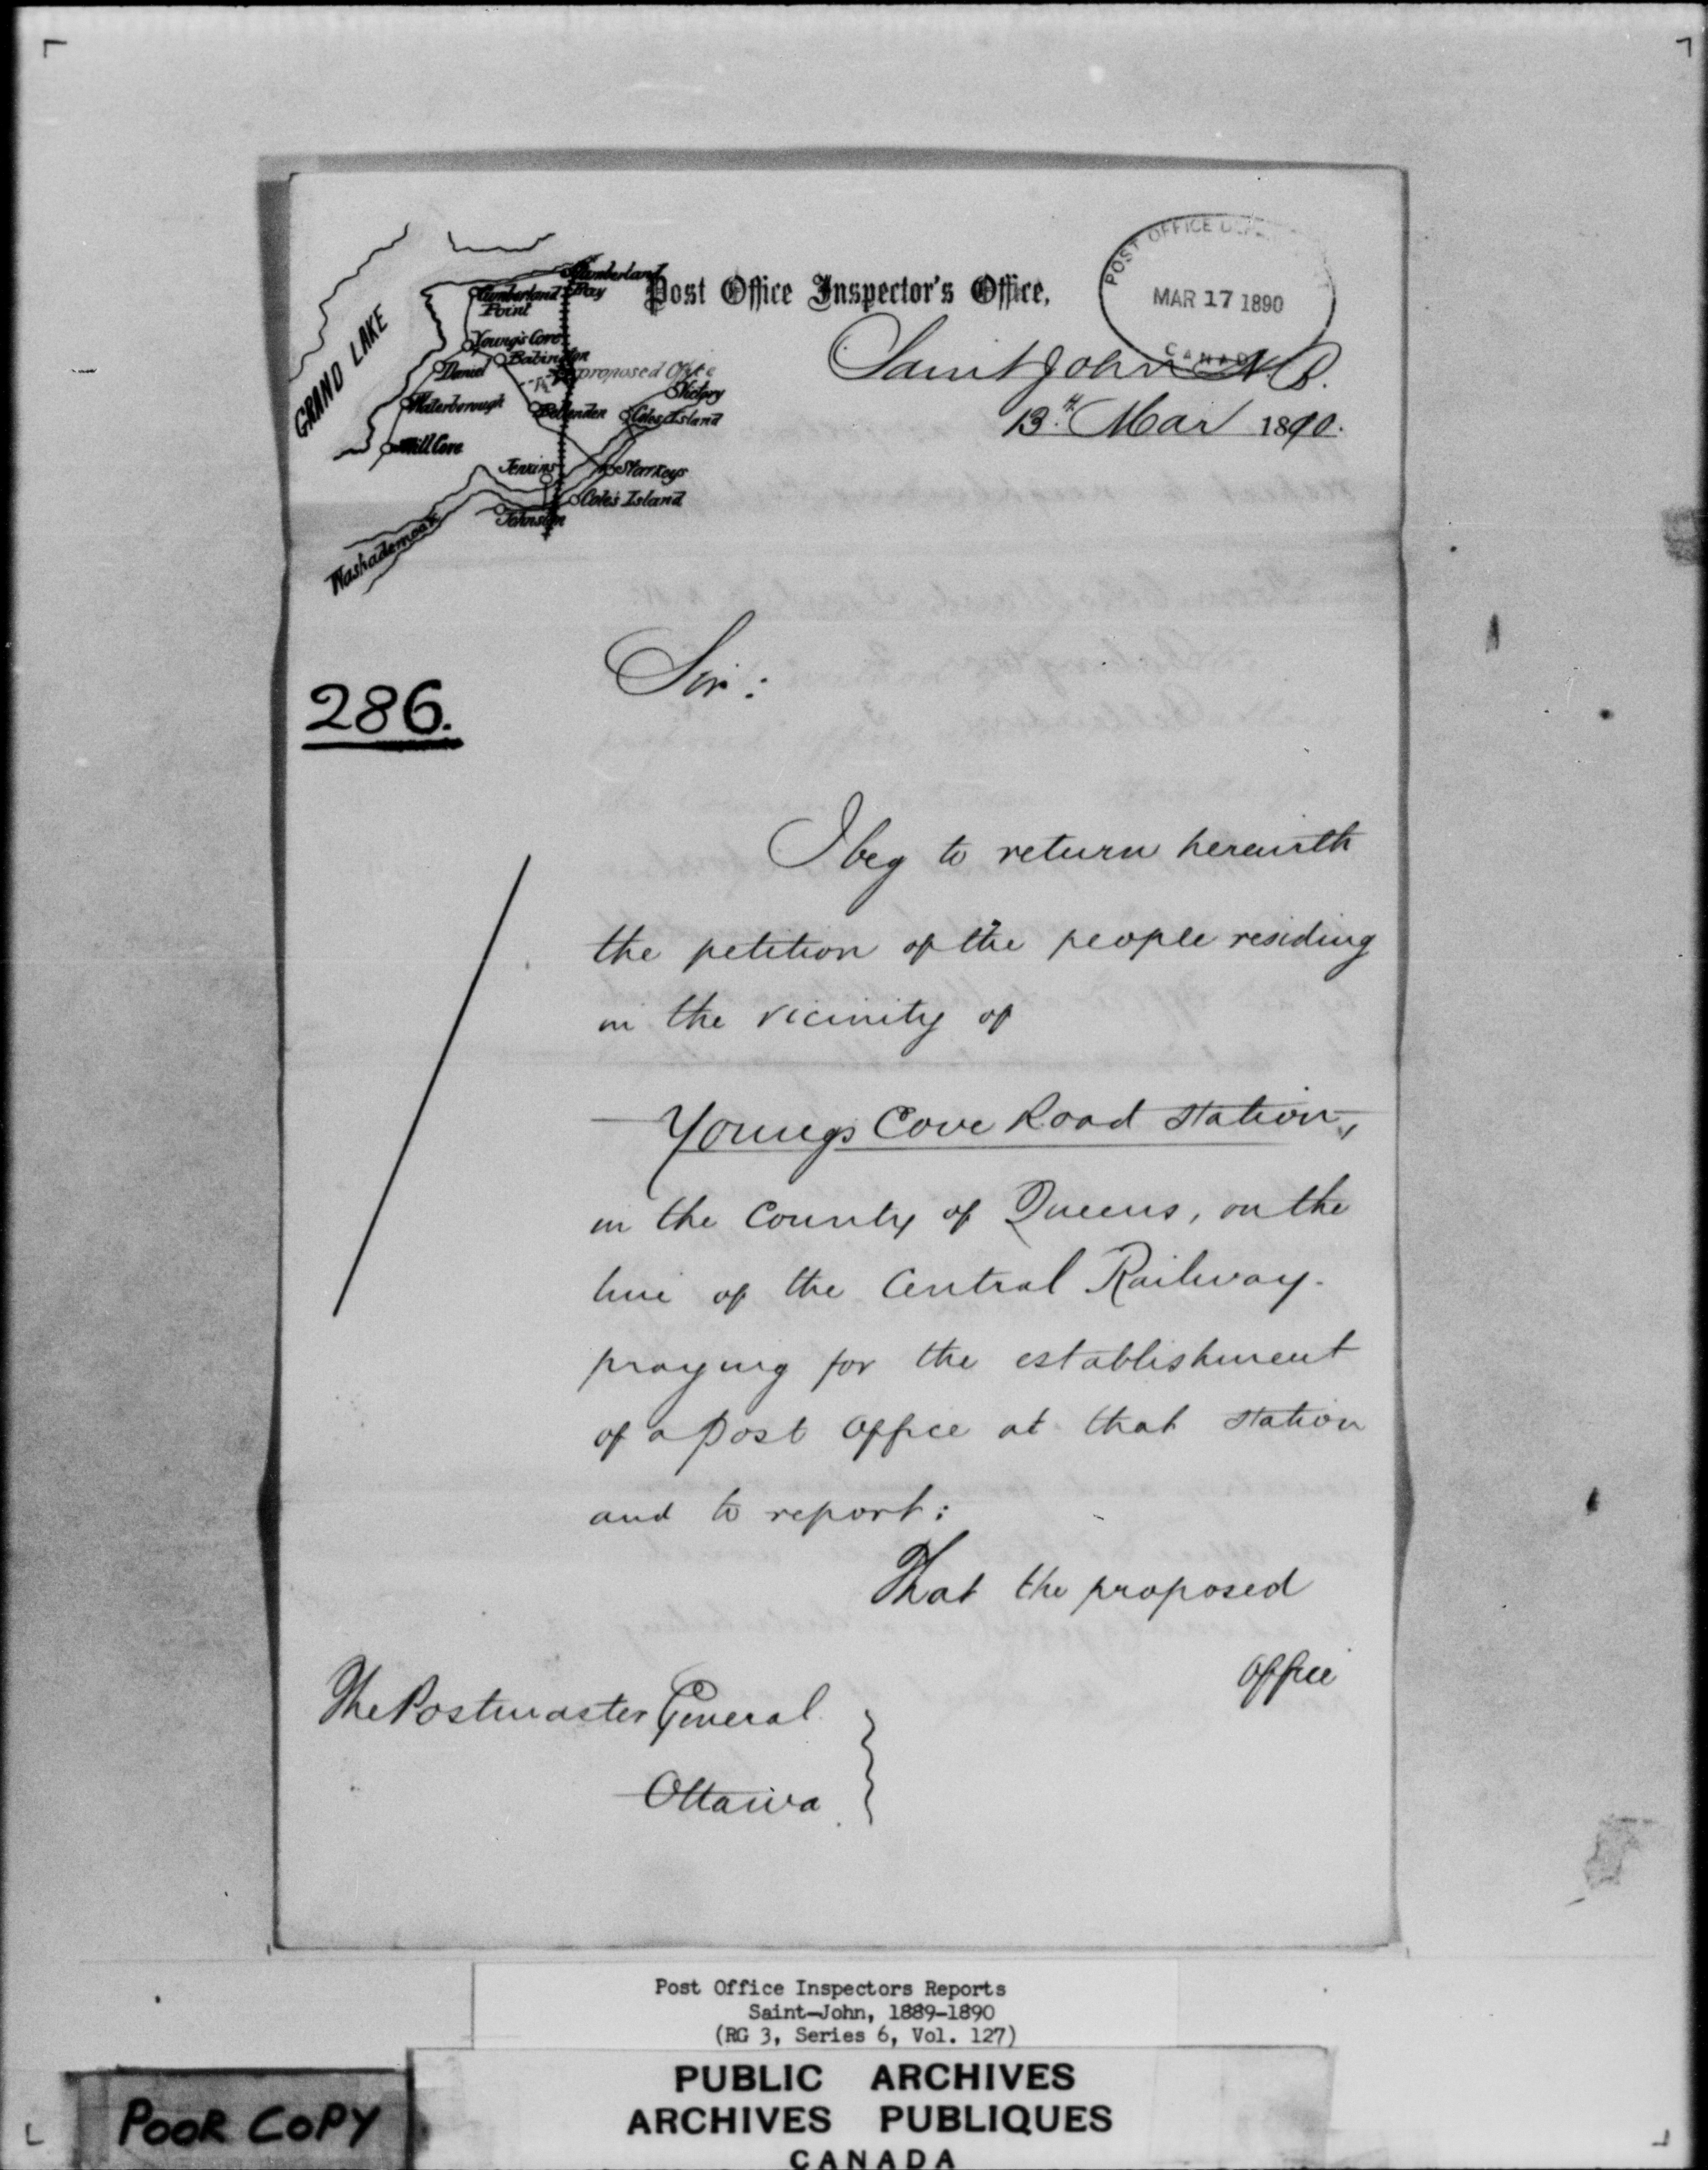 Cumberland
Bay
Cumberland
Point
Young's Cove
Babington
Daniel
"A" proposed Office
GRAND LAKE
Waterborough
Bellenden
Hickory
Coles Island
Mill Cove
Jenkins
Starkeys
Cole's Island
Johnston
Washademoak
Post Office Inspector's Office,
POST OFFICE
MAR 17 1890
CANADA
Saint John N B.
13th. Mar 1890.
286.
Sir:
I beg to return herewith
the petition of the people residing
in the vicinity of
Youngs Cove Road Station,
in the County of Queens, on the
line of the Central Railway.
praying for the establishment
of a Post Office at that station
and to report:
That the proposed
Office
The Postmaster General
Ottawa
Post Office Inspectors Reports
Saint-John, 1889-1890
(RG 3, Series 6, Vol. 127)
PUBLIC ARCHIVES
ARCHIVES PUBLIQUES
CANADA
POOR COPY